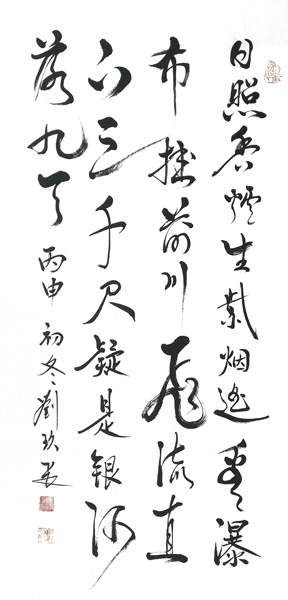 日照香爐生紫烟遥看瀑
布挂前川飛流直
下三千尺疑是銀河
落九天
丙申初冬劉玖